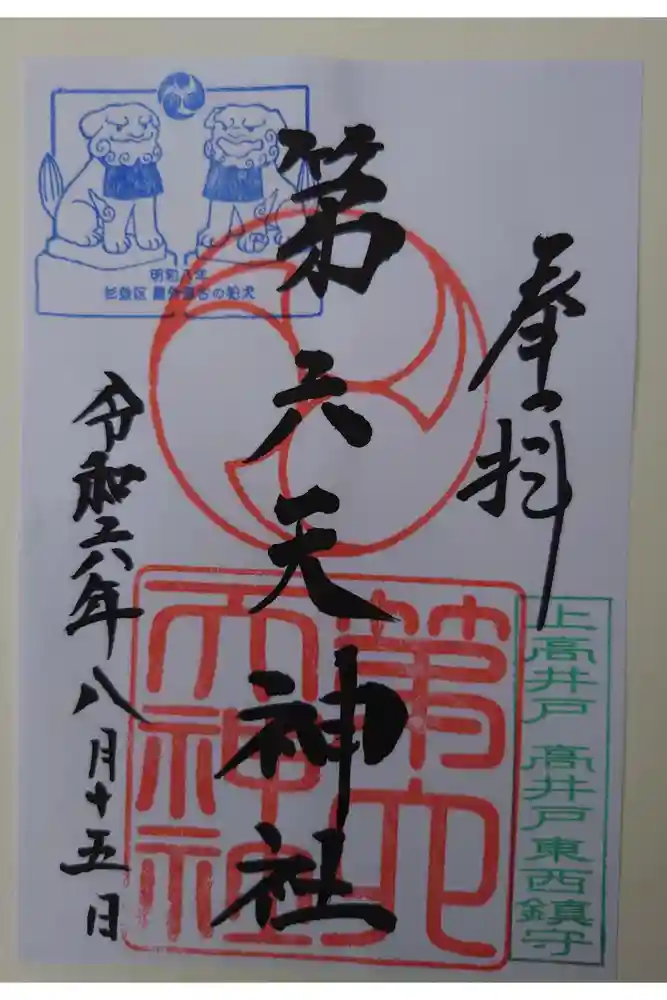 奉拝
上高井戸 高井戸東西鎮守
第六天神社
第六天神社
明和八年
杉並区 最古の狛犬
令和六年八月十五日